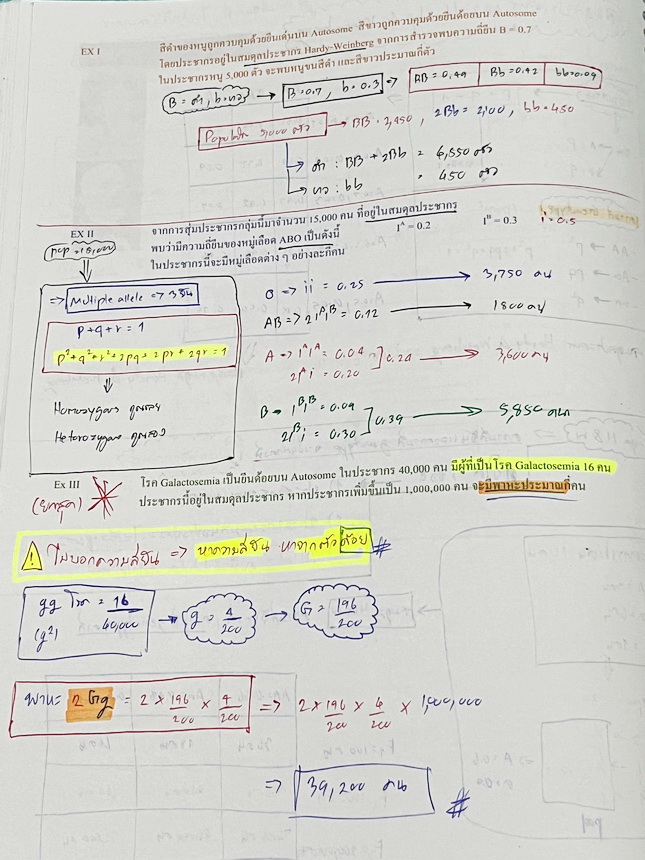 EX I
สีดำของหนูถูกควบคุมด้วยยีนเด่นบน Autosome สีขาวถูกควบคุมด้วยยีนด้อยบน Autosome
โดยประชากรอยู่ในสมดุลประชากร Hardy-Weinberg จากการสำรวจพบความถี่ยีน B = 0.7
ในประชากรหนู 5,000 ตัว จะพบหนูขนสีดำ และสีขาวประมาณกี่ตัว
B = ดำ, b = ขาว → B = 0.7, b = 0.3 → BB = 0.49 Bb = 0.42 bb = 0.09
5,000 ตัว → BB = 2,450, 2Bb = 2,100, bb = 450
→ ดำ : BB + 2Bb = 4,550 ตัว
→ ขาว : bb = 450 ตัว
EX II
จากการสุ่มประชากรกลุ่มนี้มาจำนวน 15,000 คน ที่อยู่ในสมดุลประชากร
พบว่ามีความถี่ยีนของหมู่เลือด ABO เป็นดังนี้ Iᴬ = 0.2 Iᴮ = 0.3 i = 0.5
ในประชากรนี้จะมีหมู่เลือดต่าง ๆ อย่างละกี่คน
pop = 15,000
⇒ Multiple allele ⇒ 3 ยีน
p + q + r = 1
p² + q² + r² + 2pq + 2pr + 2qr = 1
Homozygous
Heterozygous
O → ii = 0.25 → 3,750 คน
AB → 2IᴬIᴮ = 0.12 → 1800 คน
A → IᴬIᴬ = 0.04
2Iᴬi = 0.20 ] 0.24 → 3,600 คน
B → IᴮIᴮ = 0.09
2Iᴮi = 0.30 ] 0.39 → 5,850 คน
Ex III
โรค Galactosemia เป็นยีนด้อยบน Autosome ในประชากร 40,000 คน มีผู้ที่เป็นโรค Galactosemia 16 คน
ประชากรนี้อยู่ในสมดุลประชากร หากประชากรเพิ่มขึ้นเป็น 1,000,000 คน จะมีพาหะประมาณกี่คน
ไม่บอกความถี่ยีน ⇒ หาความถี่ยีน หาจากตัวด้อย #
gg โรค = 16/40,000 → g = 4/200 → G = 196/200
(g²)
พาหะ 2Gg = 2 × 196/200 × 4/200 ⇒ 2 × 196/200 × 4/200 × 1,000,000
⇒ 39,200 คน #